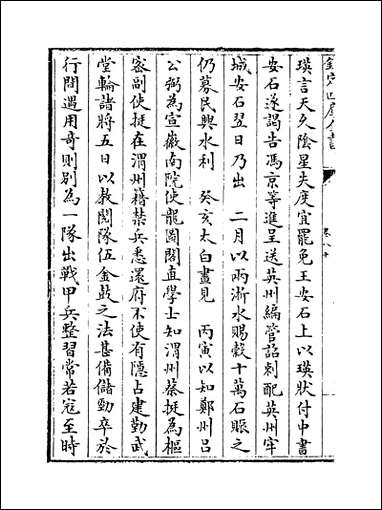 欽定四庫全書
瑛言天久陰星失度宜罷免王安石上以瑛狀付中書
安石遂謁告馮京等進呈送英州編管詔刺配英州牢
城安石翌日乃出　二月以兩浙水賜穀十萬石賑之
仍募民興水利　癸亥太白晝見　丙寅以知鄭州呂
公弼為宣徽南院使龍圖閣直學士知渭州蔡挺為樞
密副使挺在渭州籍禁兵悉還府不使有隱占建勤武
堂輪諸將五日以教閱隊伍金鼓之法甚備儲勁卒於
行間遇用奇則別為一隊出戰甲兵整習常若寇至時